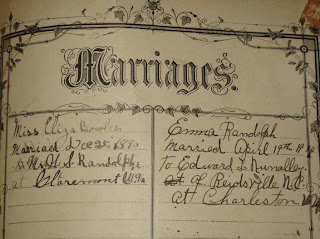 Marriages.
Miss Eliza
Married Dec 25, 1890
to Mr. S. Randolph
at Claremont W.Va
Emma Randolph
Married April 19th
to Edward L. Nunalley
of Reidsville N.C.
at Charleston